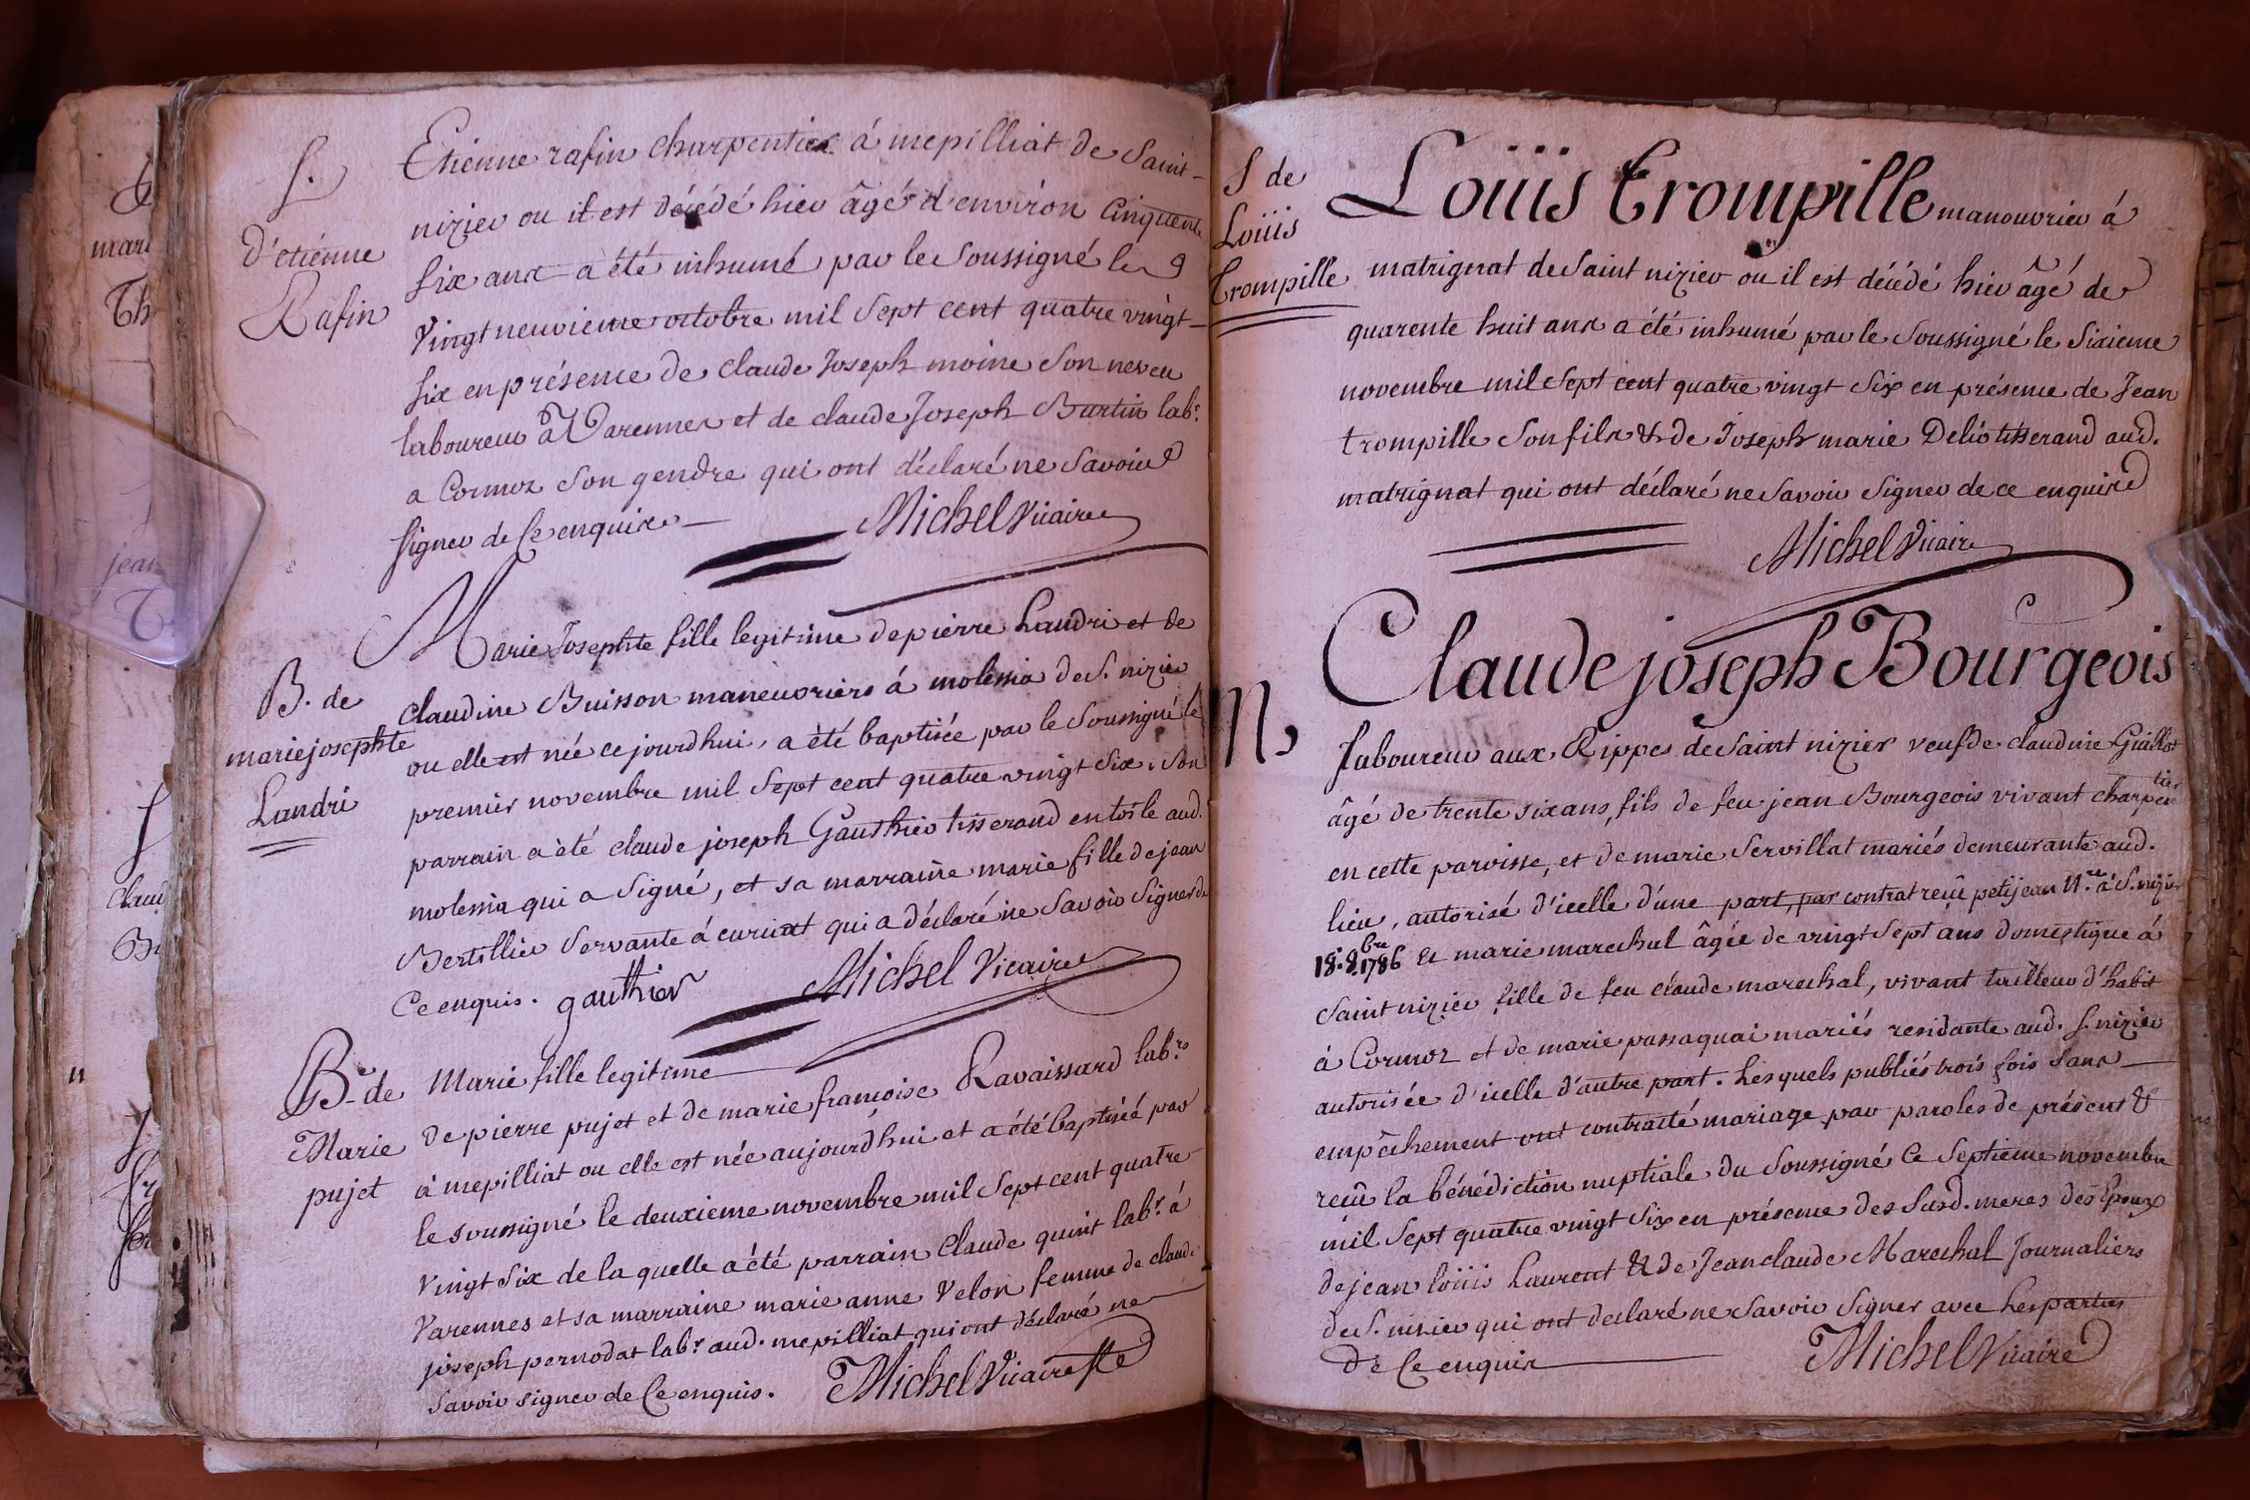 S.
D'etiénne
Rafin
Etiénne rafin charpentier á mepilliat de Saint-
nizier ou il est décédé hier âgé d'environ cinquente
six ans a été inhumé par le Soussigné le
vingt neuvieme octobre mil sept cent quatre vingt-
six en présence de claude Joseph moine Son neveu
laboureur à Varennes et de claude Joseph Burtin lab.r
a Cormoz Son gendre qui ont déclaré ne Savoir
signer de Ce enquis
Michel Vicaire
B. de
marie josephte
Landri
Marie Josephte fille legitime de pierre Landri et de
claudine Buisson maneuvriers á molema de S. nizier
ou elle est née ce jourd'hui, a èté baptisée par le Soussigné le
premier novembre mil Sept cent quatre vingt six. Son
parrain a èté claude joseph Gauthier tisserand en toile aud.
molema qui a Signé, et sa marraine marie fille de jean
Bertillier Servante á curciat qui a déclaré ne Savoir Signer de
Ce enquis. gauthier Michel Vicaire
B. de
Marie
pujet
Marie fille legitime
de pierre pujet et de marie françoise Ravaissard lab.rs
à mepilliat ou elle est née aujourd'hui et a été baptisée par
le soussigné le deuxieme novembre mil Sept cent quatre
vingt Six de la quelle a été parrain Claude quint lab.r á
Varennes et sa marraine marie anne Velon femme de claude
joseph pernodat lab.r aud. mepilliat qui ont déclaré ne
savoir signer de Ce enquis. Michel Vicaire
S de
Loüis
Trompille
Loüis Trompille manouvrier á
matrignat de Saint nizier ou il est décédé hier âgé de
quarente huit ans a été inhumé par le Soussigné le Sixieme
novembre mil Sept cent quatre vingt Six en présence de Jean
trompille Son fils & de Joseph marie Delio tisserand aud.
matrignat qui ont déclaré ne Savoir Signer de ce enquis
Michel Vicaire
n,
Claude joseph Bourgeois
laboureur aux Rippes de Saint nizier veuf de claudine Guillot
âgé de trente six ans, fils de feu jean Bourgeois vivant charpentier
en cette paroisse, et de marie Servillat mariés demeurante aud.
lieu, autorisé d'icelle d'une part, par contrat reçû petijean N.re à S. nizier
18. 8.bre 1786 et marie marechal âgée de vingt Sept ans domestique á
Saint nizier fille de feu claude marechal, vivant tailleur d'habit
à Cormoz et de marie passaquai mariés residante aud. S. nizier
autorisée d'icelle d'autre part. Lesquels publiés trois fois Sans
empêchement ont contracté mariage par paroles de présent &
reçû la bénédiction nuptiale du Soussigné Ce Septieme novembre
mil Sept quatre vingt Six en présence des Susd. meres des Epoux
de jean loüis Laurent & de Jean claude Marechal Journaliers
de S. nizier qui ont declaré ne Savoir Signer avec Les parties
de Ce enquis
Michel Vicaire